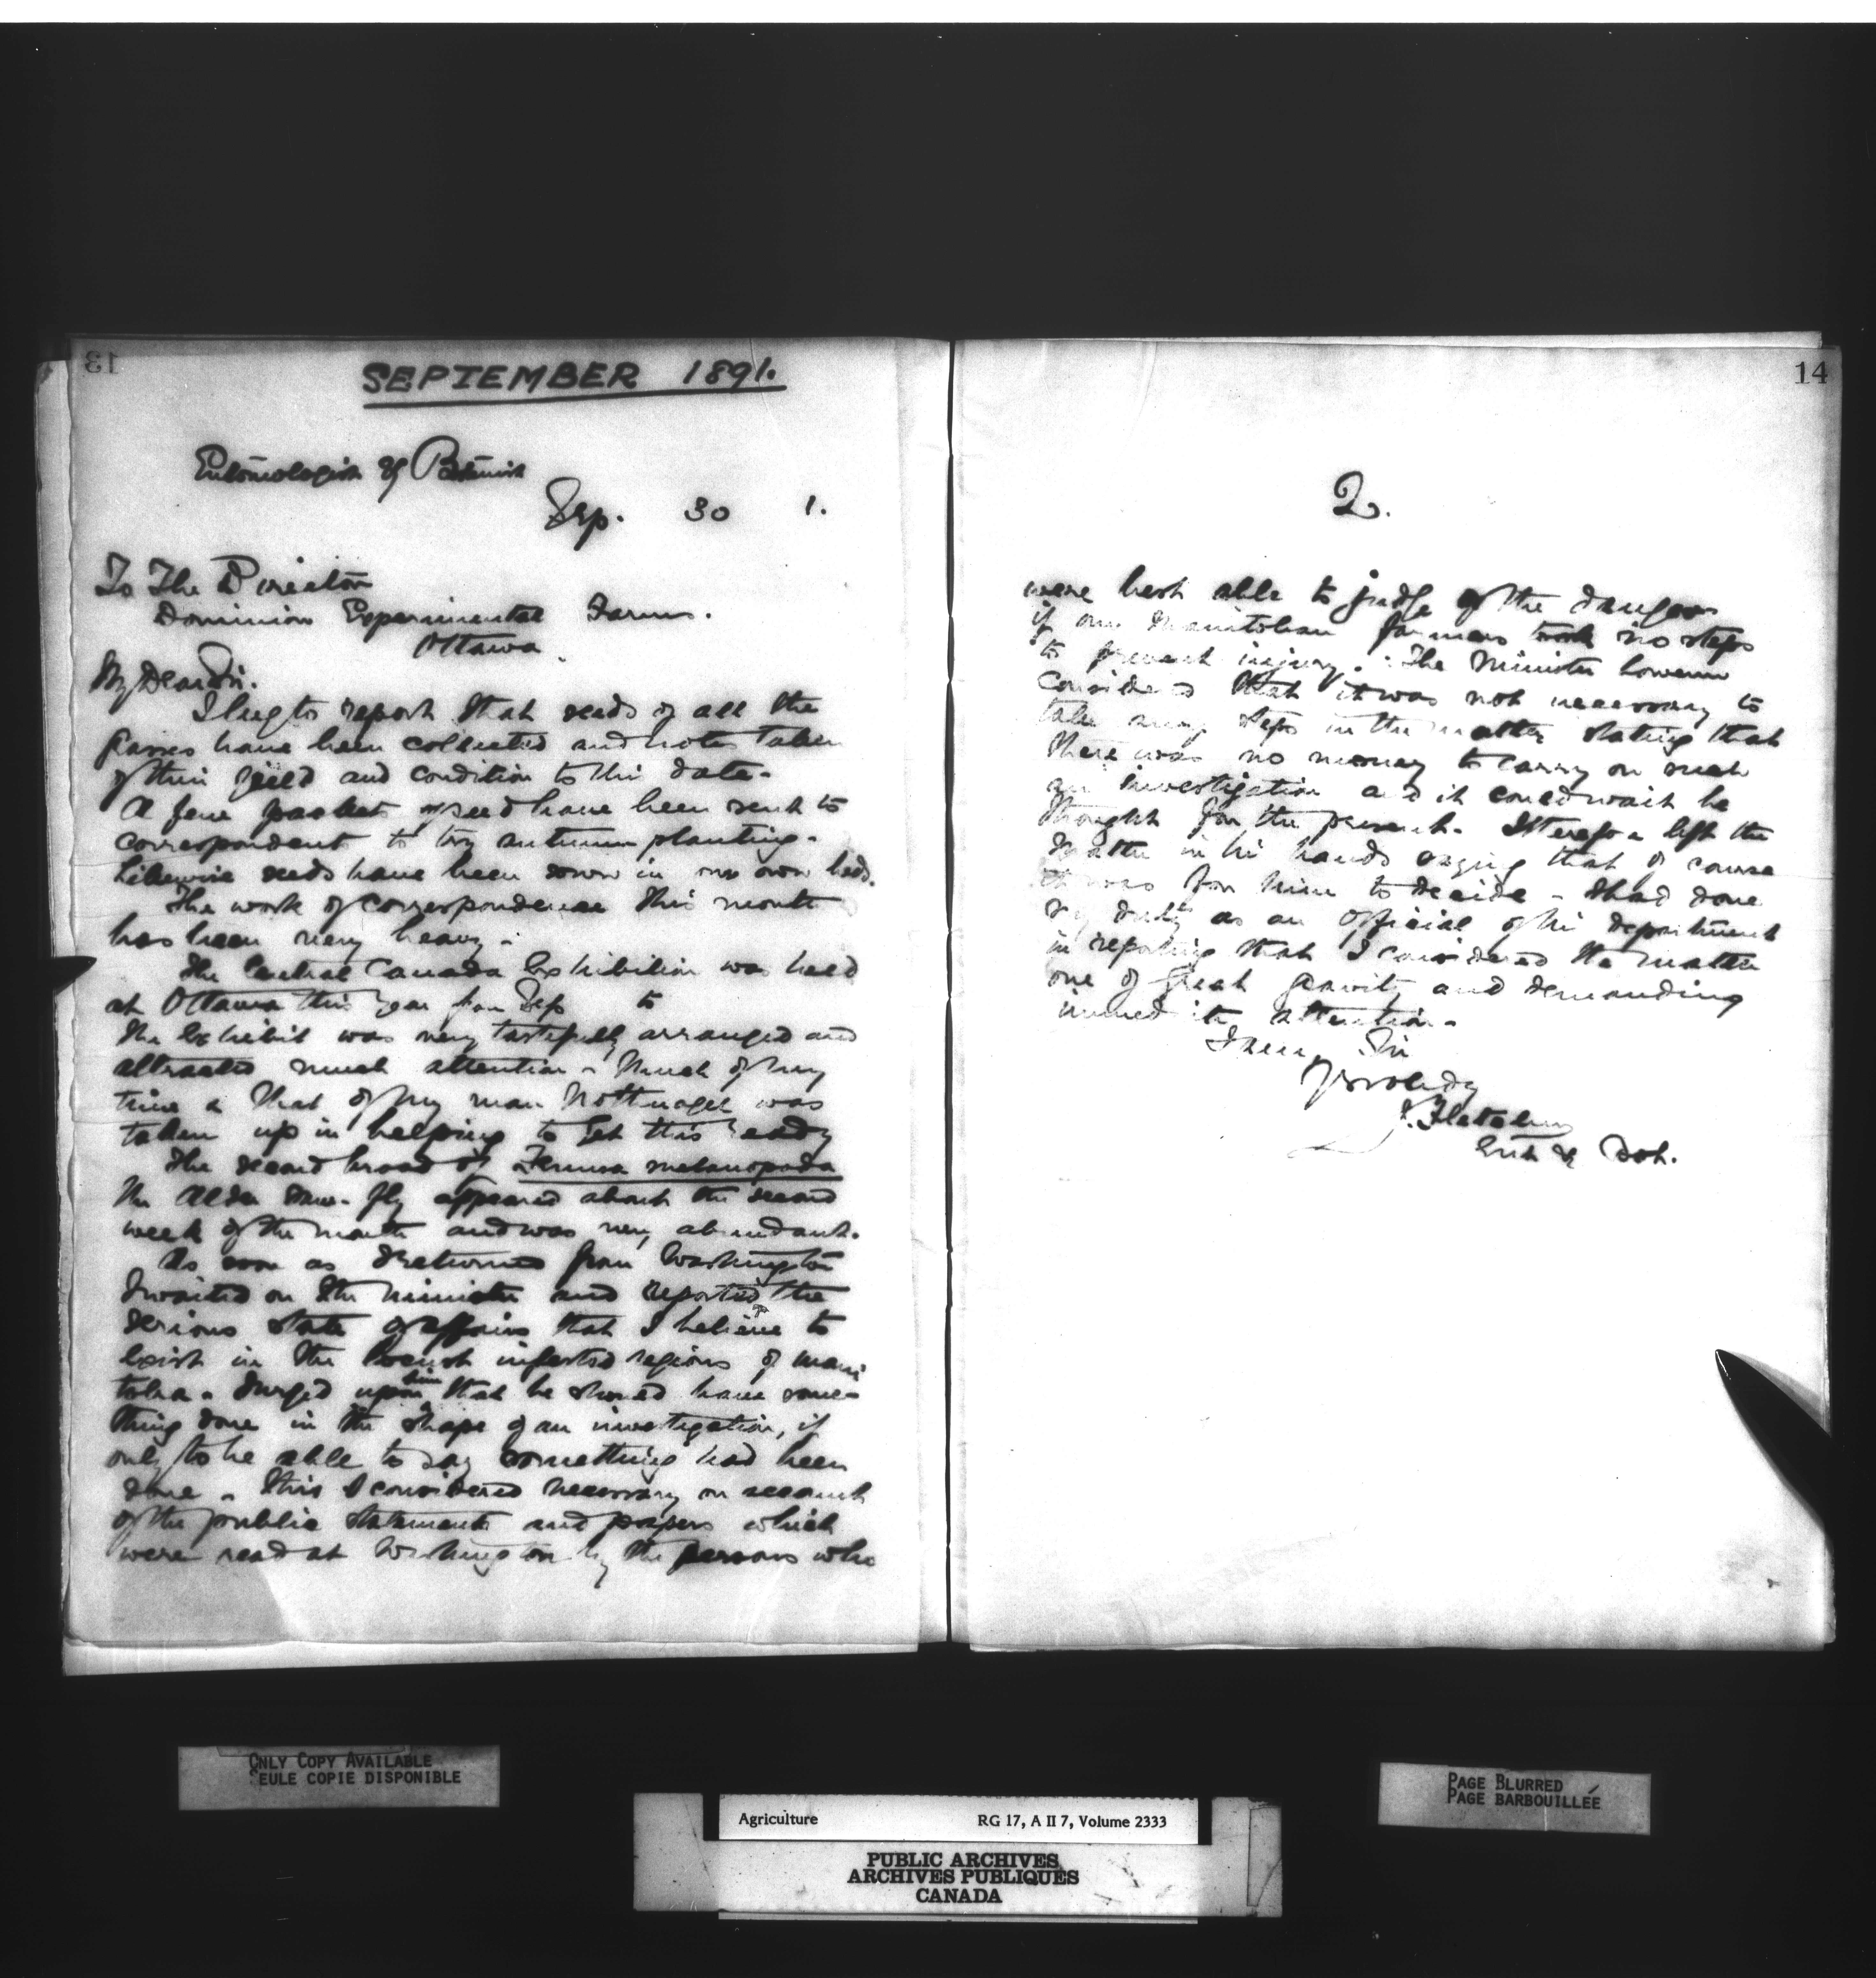 13
SEPTEMBER 1891.
Entomologist & Botanist
Sep. 30 1.
To The Director
Dominion Experimental Farms.
Ottawa.
My Dear Sir.
I beg to report that seeds of all the
grasses have been collected and notes taken
of their yield and condition to this date.
A few packets of seed have been sent to
correspondents to try autumn planting.
Likewise seeds have been sown in our own beds.
The work of correspondence this month
has been very heavy.
The Central Canada Exhibition was held
at Ottawa this year from Sep to
The Exhibit was very tastefully arranged and
attracted much attention. Much of my
time & that of my man Nottnagel was
taken up in helping to get this ready
The second brood of melanopoda
the Alder saw-fly appeared about the second
week of the month and was very abundant.
As soon as I returned from Washington
I waited on the Minister and reported the
serious state of affairs that I believe to
exist in the locust infested regions of Mani
toba. I urged upon him that he should have some-
thing done in the shape of an investigation, if
only to be able to say something had been
done. This I considered necessary on account
of the public statements and papers which
were read at Washington by the persons who
14
2.
were best able to judge of the dangers
if our Manitoban farmers took no steps
to prevent injury. The Minister however
considered that it was not necessary to
take any steps in the matter stating that
there was no money to carry on such
an investigation and it could wait he
thought for the present. I therefore left the
matter in his hands saying that of course
it was for him to decide. I had done
my duty as an official of his department
in reporting that I considered the matter
one of great gravity and demanding
immediate attention.
I am, Sir
Yrs
J. Fletcher
Ent & Bot.
ONLY COPY AVAILABLE
SEULE COPIE DISPONIBLE
PAGE BLURRED
PAGE BARBOUILLÉE
Agriculture RG 17, A II 7, Volume 2333
PUBLIC ARCHIVES
ARCHIVES PUBLIQUES
CANADA